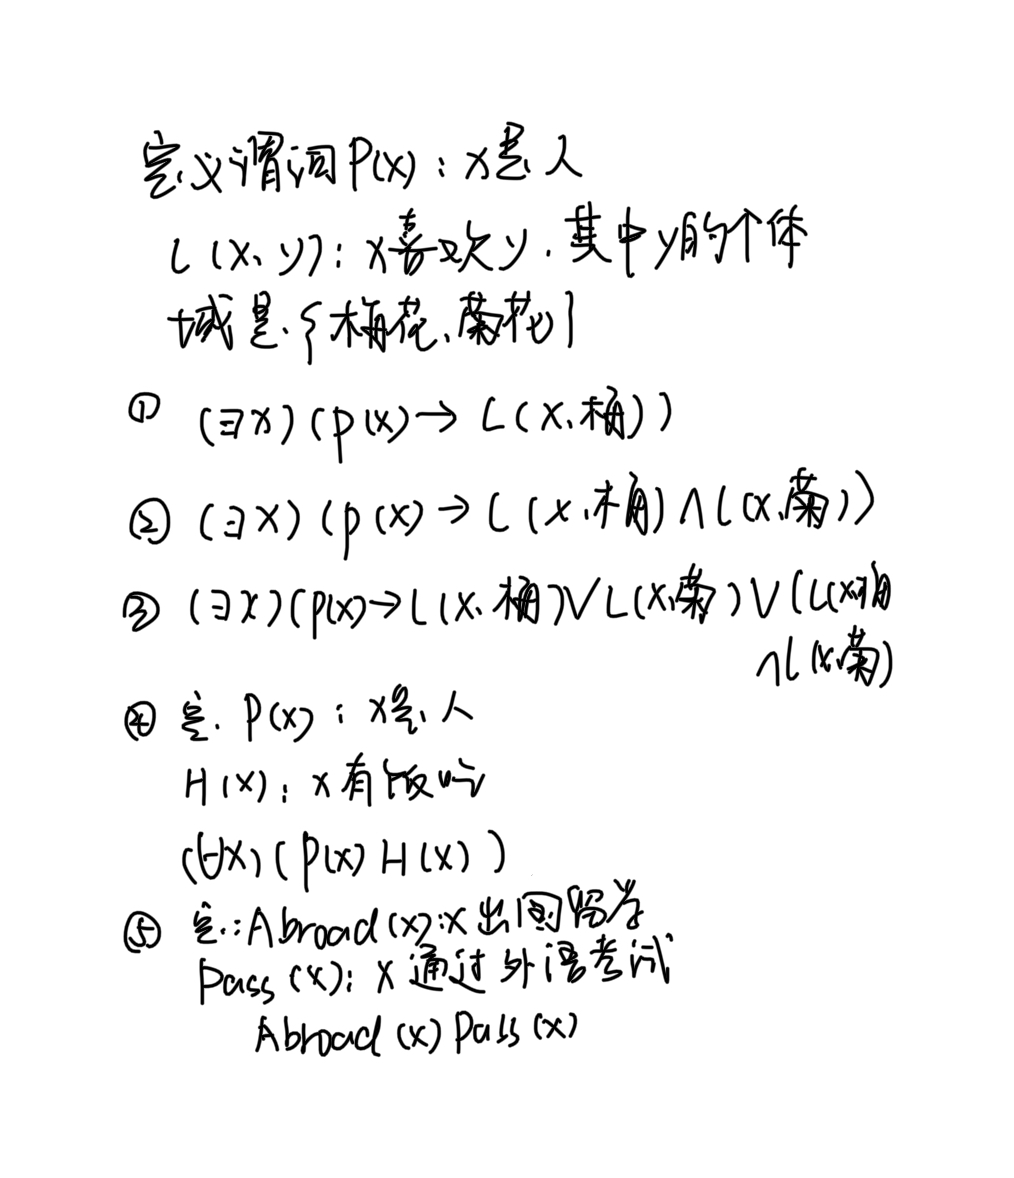 定义谓词P(x):x是人
L(x、y):x喜欢y.其中y的个体
域是{梅花、菊花}
① (∃x)(P(x)→L(x、梅))
② (∃x)(P(x)→L(x、梅)∧L(x、菊))
③ (∃x)(P(x)→L(x、梅)∨L(x、菊)∨(L(x、梅
∧L(x、菊)
④ 定.P(x):x是人
H(x):x有饭吃
(∀x)(P(x)H(x))
⑤ 定:Abroad(x):x出国留学
Pass(x):x通过外语考试
Abroad(x)Pass(x)